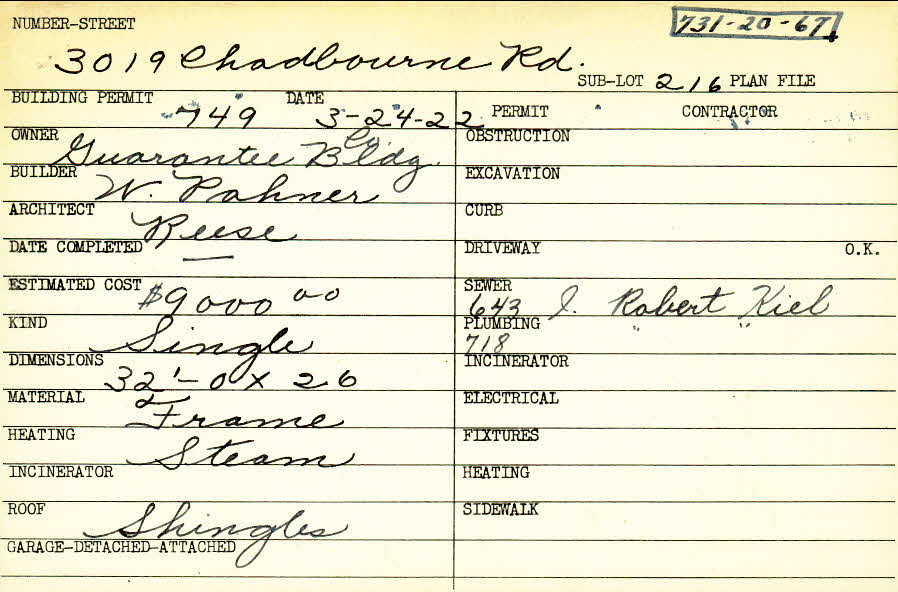 NUMBER-STREET 731-20-67
3019 Chadbourne Rd.
SUB-LOT 216 PLAN FILE
BUILDING PERMIT 749 DATE 3-24-22
PERMIT CONTRACTOR
OWNER Guarantee Bldg. Co.
OBSTRUCTION
BUILDER W. Pahner
EXCAVATION
ARCHITECT Reese
CURB
DATE COMPLETED —
DRIVEWAY O.K.
ESTIMATED COST $9000 00
SEWER 643 J. Robert Kiel
KIND Single
PLUMBING 718 " "
DIMENSIONS 32'-0 X 26
INCINERATOR
MATERIAL Frame
ELECTRICAL
HEATING Steam
FIXTURES
INCINERATOR
HEATING
ROOF Shingles
SIDEWALK
GARAGE-DETACHED-ATTACHED